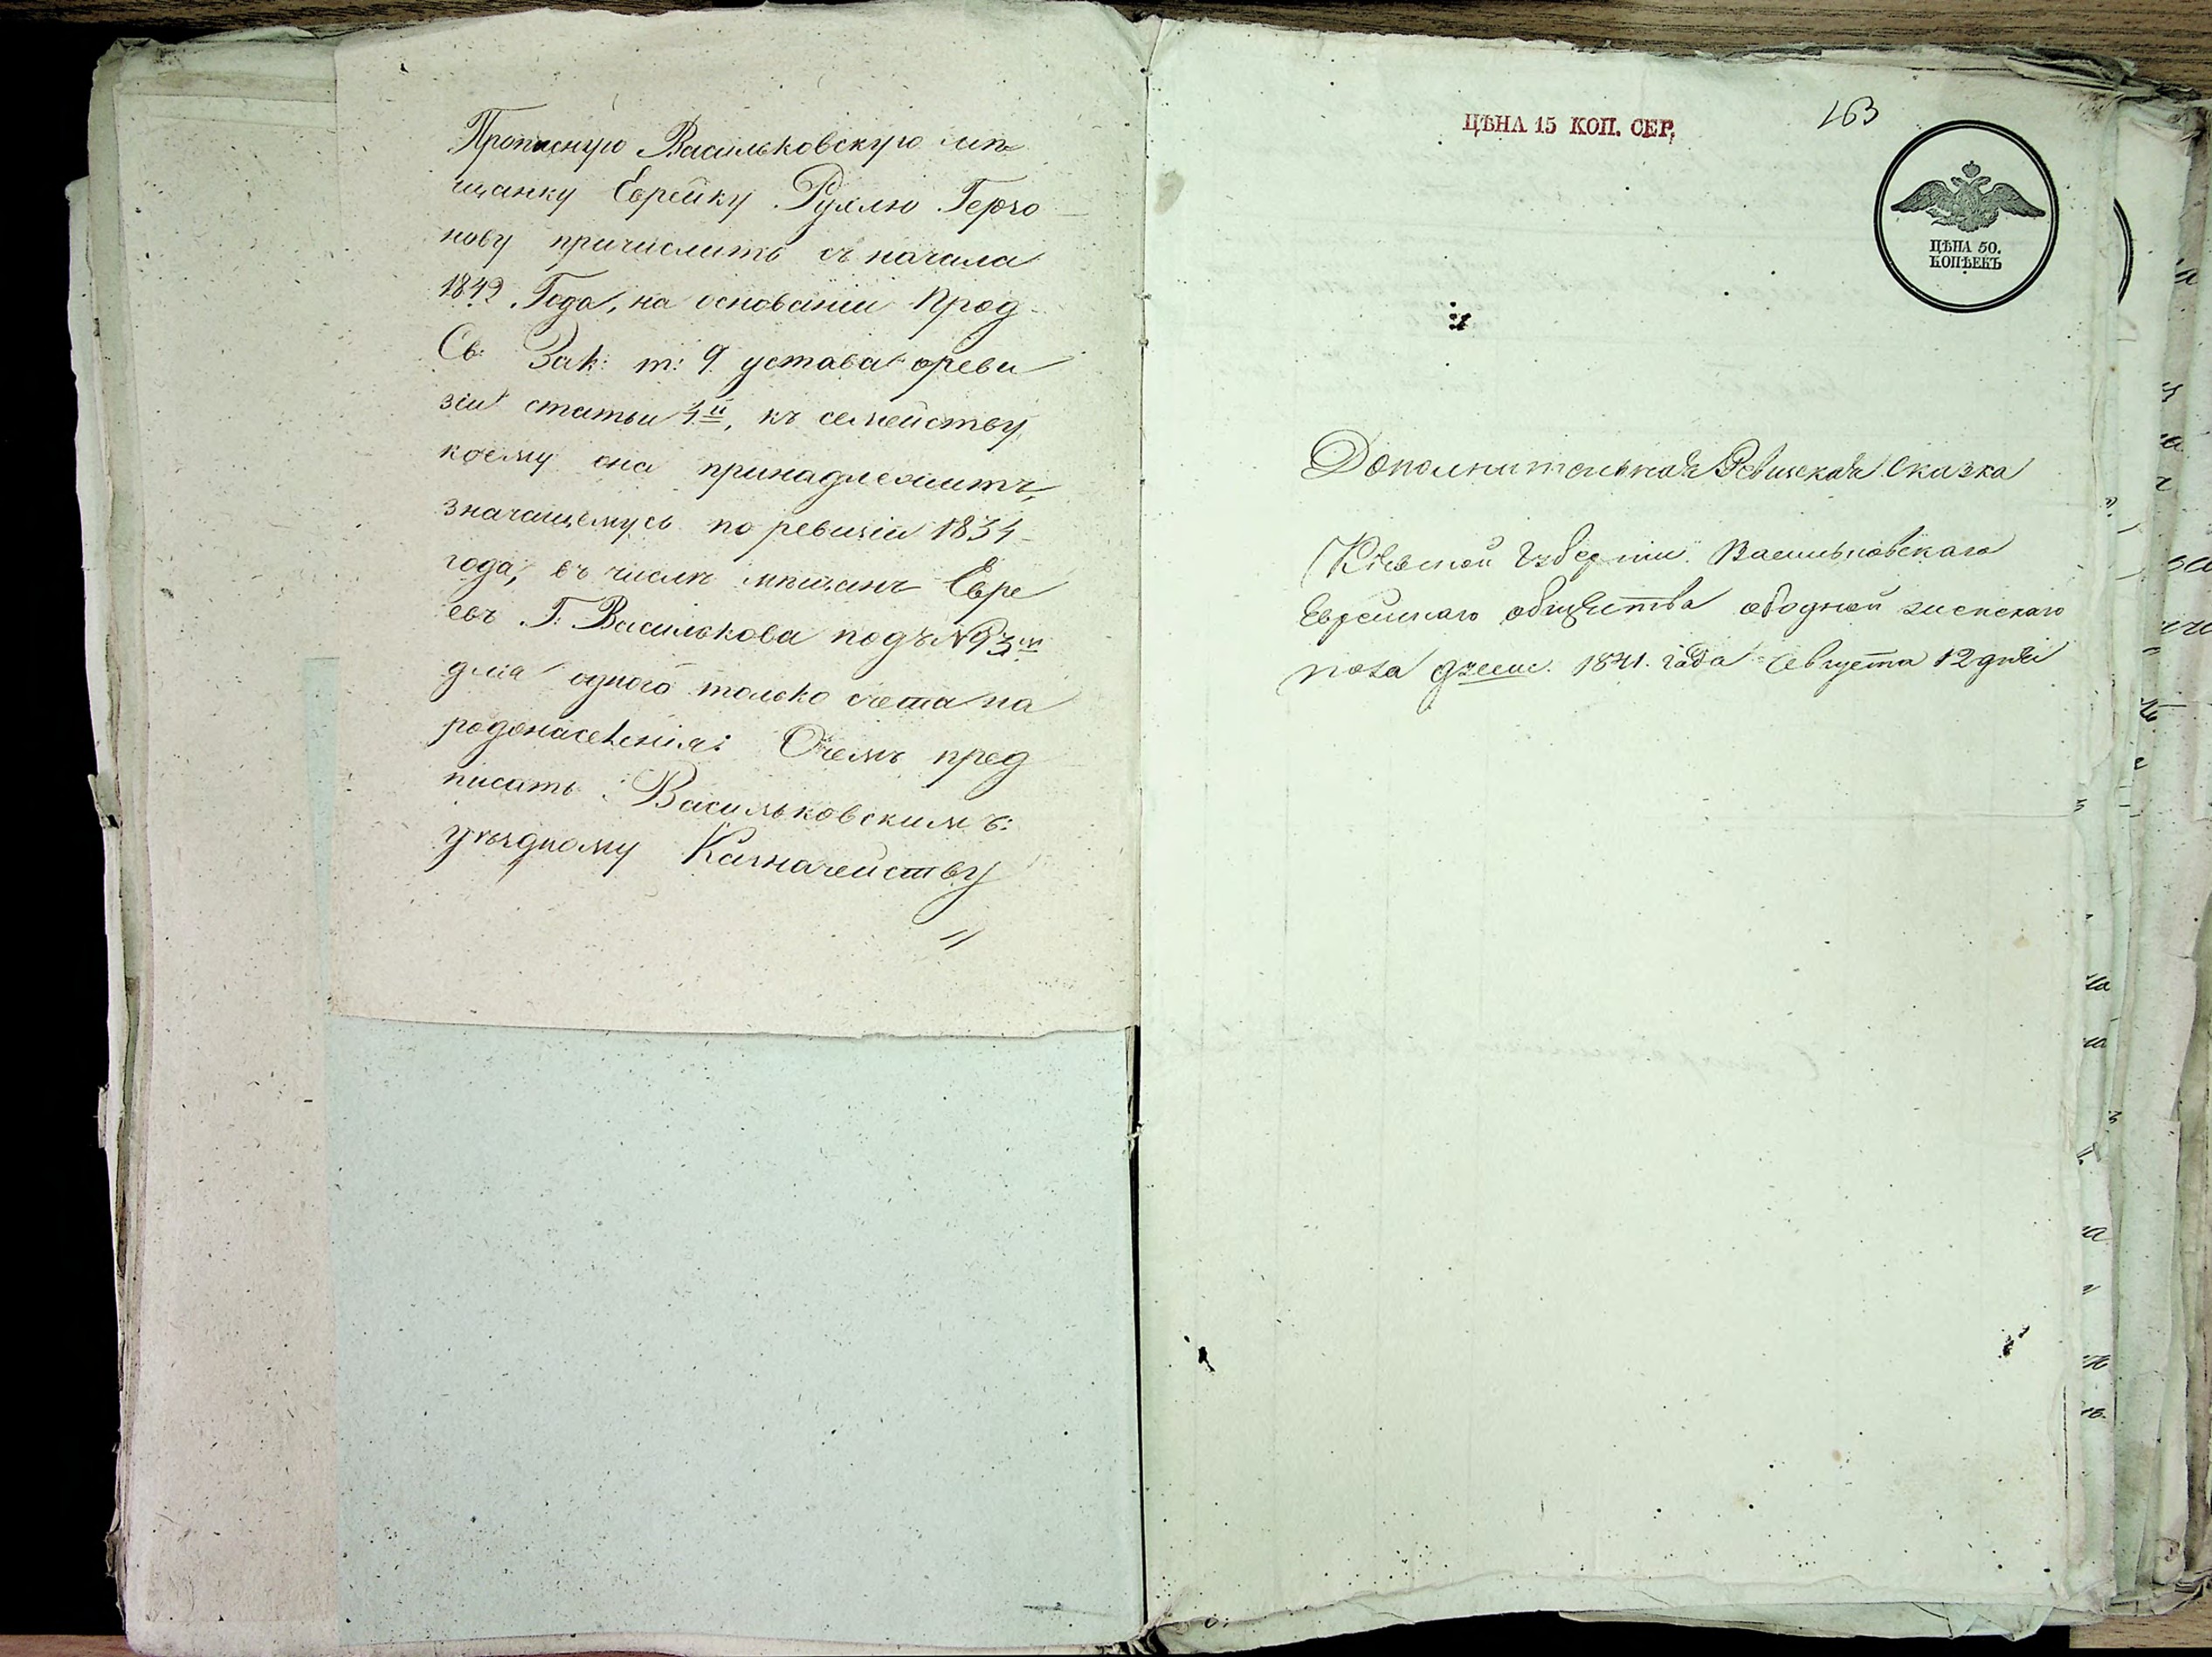 Прописную Васильковскую мѣ
щанку Еврейку Рухлю Герчо
нову причислить съ начала
1842 Года, на основаніи Прод
Св: Зак: т: 9 устава ореви
зіи статьи 4й, къ семейству
коему она принадлежитъ,
значащемуся по ревизіи 1834
года, въ числѣ мѣщанъ Евре
евъ Г: Василькова подъ № 93м
для одного только счета на
родонаселенія: Очемъ пред
писать Васильковскимъ:
уѣздному Казначейству
ЦѢНА 15 КОП. СЕР.
163
ЦѢНА 50.
КОПѢЕКЪ
Дополнительная Ревизская Сказка
Кіевской Губерніи Васильковскаго
Еврейскаго общества ободной женскаго
пола душе. 1841. года августа 12 дня